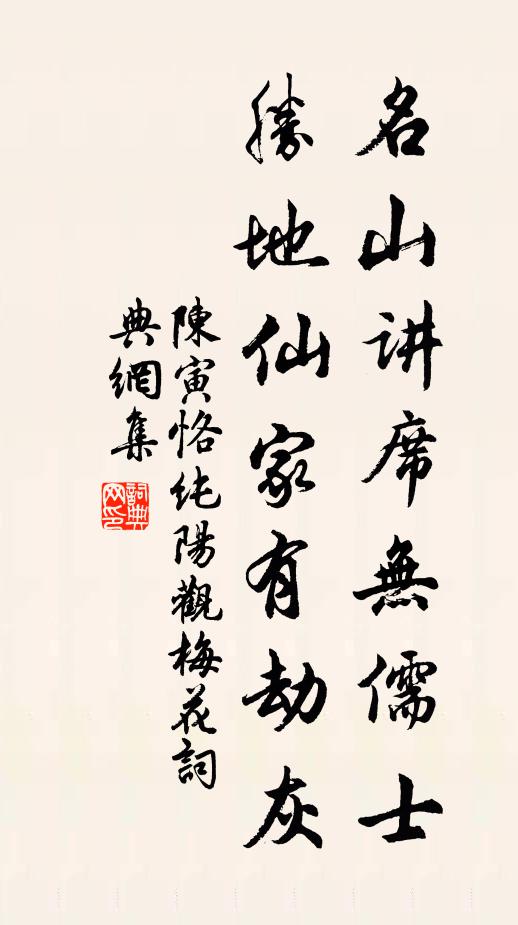 名山讲席無儒士
勝地仙家有劫灰
陳寅恪純陽觀梅花詞
典網集
詞典網印